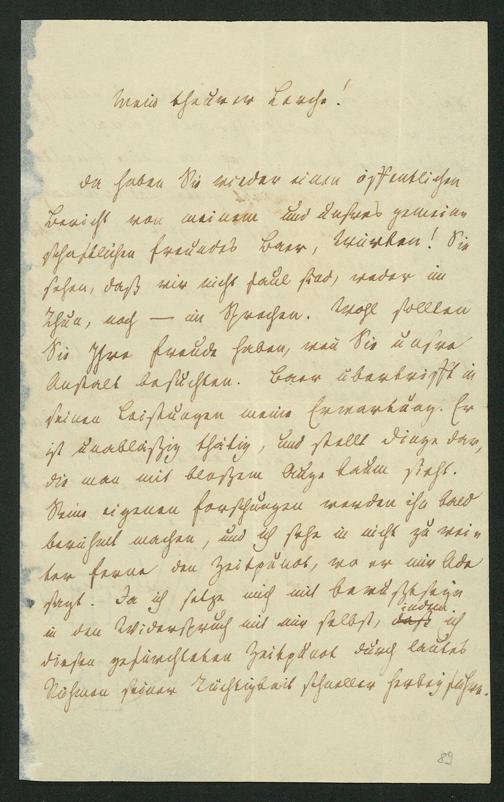 Mein theurer Lerche!
Da haben Sie wieder einen öffentlichen
Bericht von meinem und unsres gemein-
schaftlichen Freundes Baer, Würken! Sie
sehen, daß wir nicht faul sind, weder im
Thun, noch — im Sprechen. Wohl sollten
Sie Ihre Freude haben, wen Sie unsre
Anstalt besuchten. Baer übertrifft in
seinen Leistungen meine Erwartung. Er
ist unabläßig thätig, und stellt Dinge dar,
die man mit bloßem Auge kaum sieht.
Seine eigenen Forschungen werden ihn bald
berühmt machen, und ich sehe in nicht zu wei-
ter Ferne den Zeitpunct, wo er mir Ade
sagt. Ja ich setze mich mit Bewußtseyn
in den Widerspruch mit mir selbst, indem ich
diesen gefürchteten Zeitpunct durch lautes
Rühmen seiner Tüchtigkeit schneller herbey führe.
89